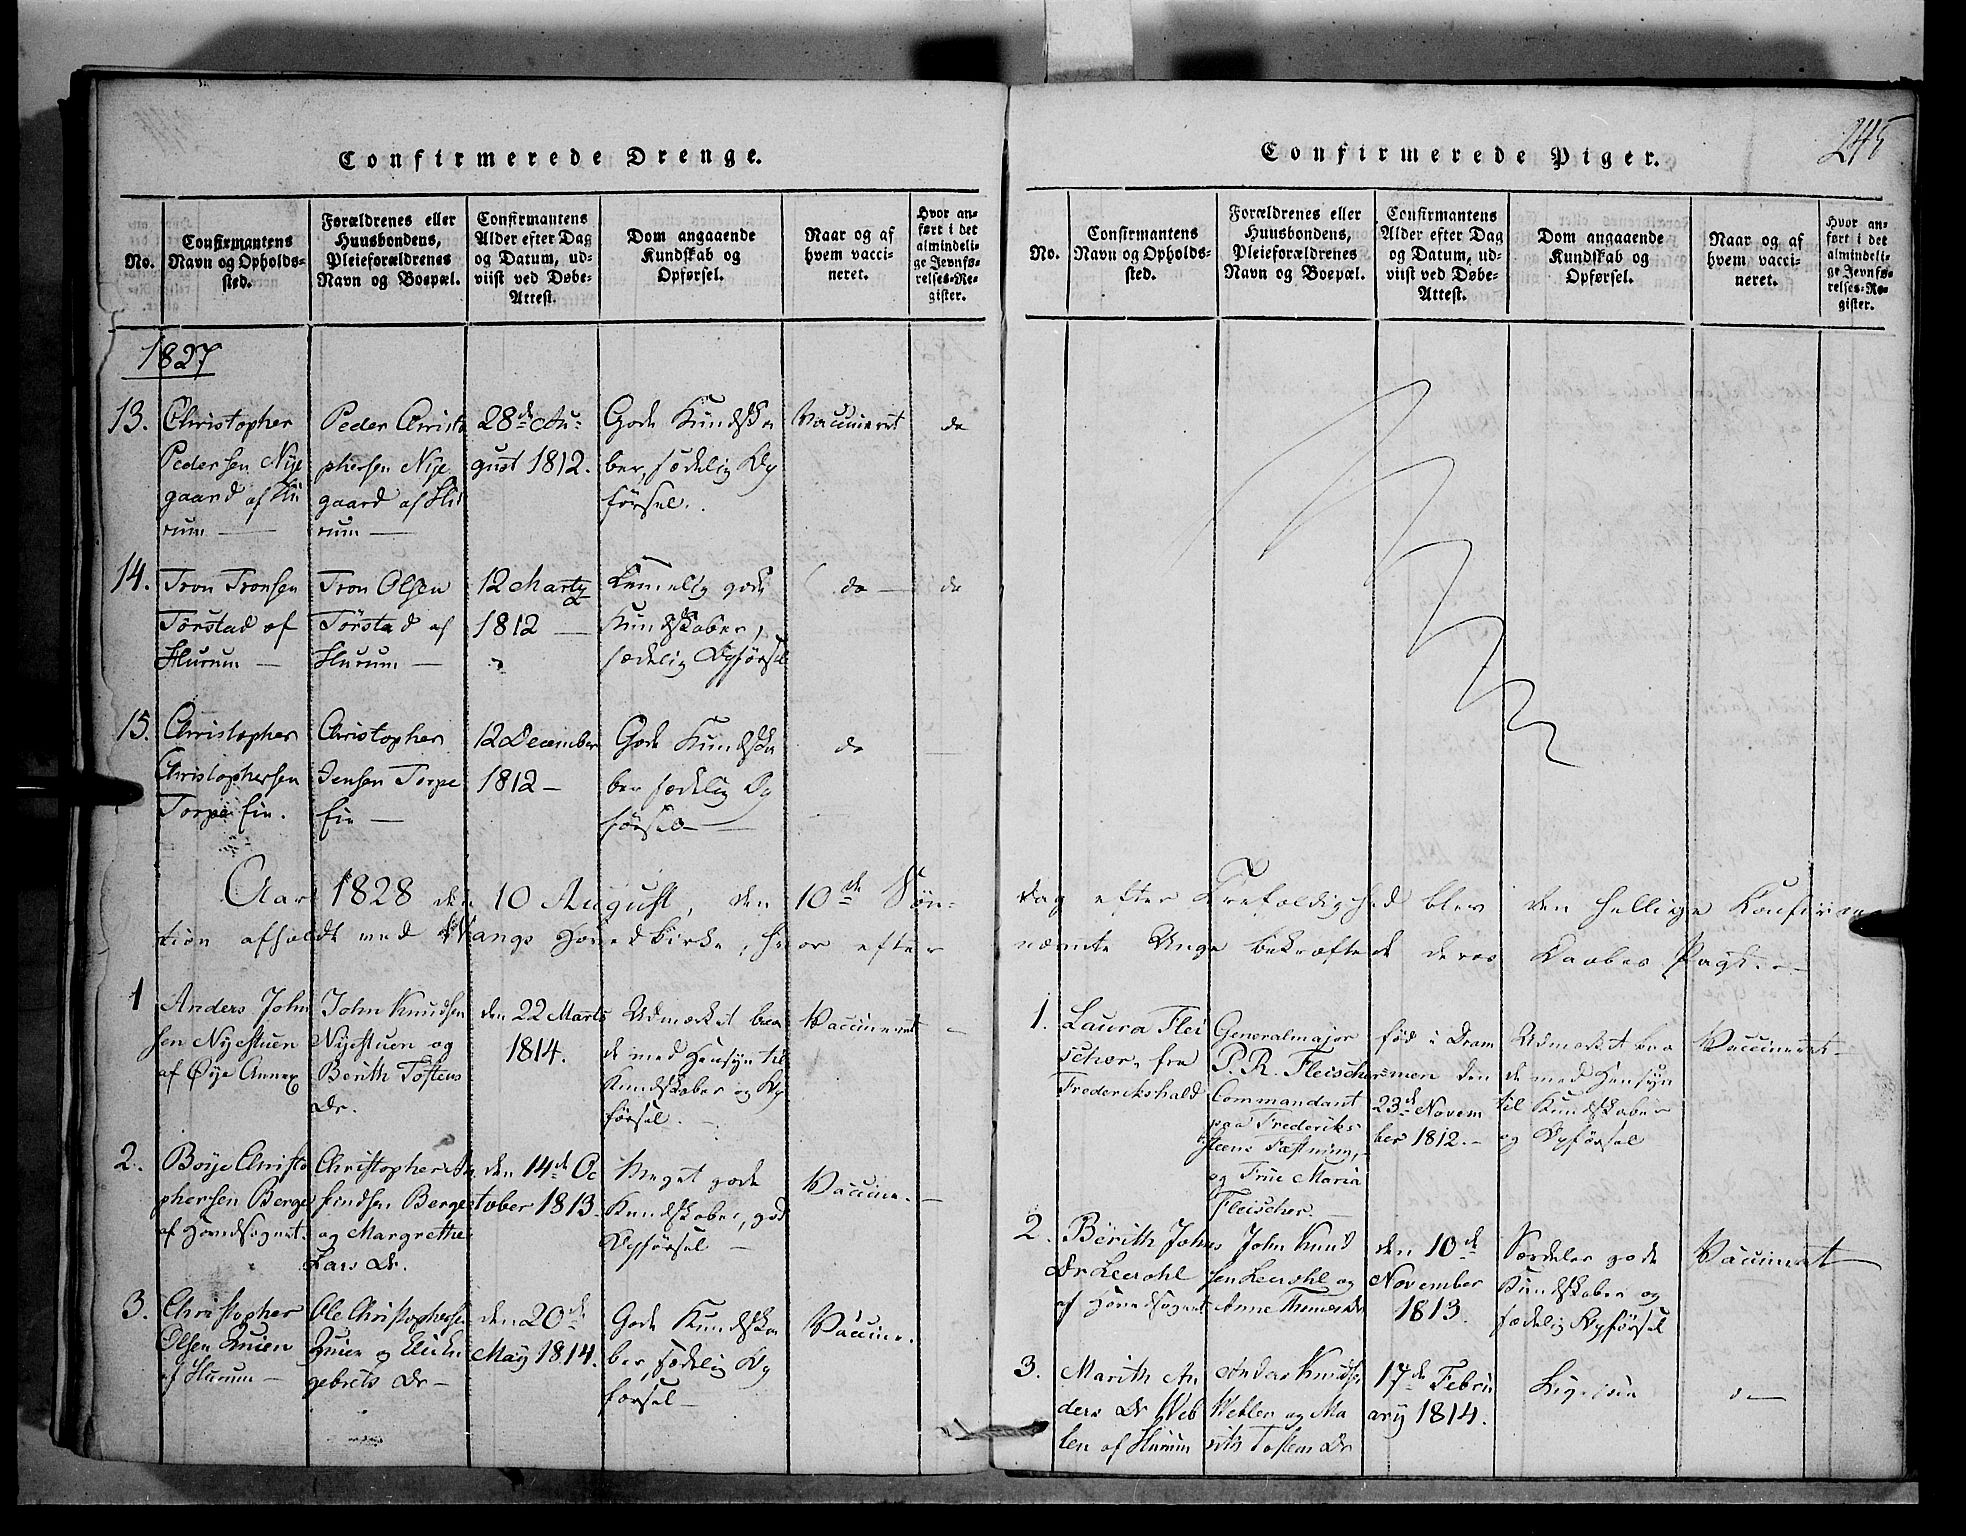 Confirmerede Drenge.
No.
Confirmantens
Navn og Opholds-
sted.
Forældrenes eller
Huusbondens,
Pleieforældrenes
Navn og Boepæl.
Confirmantens
Alder efter Dag
og Datum, ud-
viist ved Døbe-
Attest.
Dom angaaende
Kundskab og
Opførsel.
Naar og af
hvem vacci-
neret.
Hvor an-
ført i det
almindeli-
ge Jevnfø-
relses-Re-
gister.
1827
13.
Christopher
Pedersen Nye
gaard af Hu
rum —
Peder Christo
phersen Nye
gaard af Hu
rum —
28de Au-
gust 1812.
Gode Kundska
ber, sædelig Op
førsel.
Vaccineret
do
14.
Tron Tronsen
Tørstad af
Hurum —
Tron Olsen
Tørstad af
Hurum —
12 Marty
1812 —
Temelig gode
Kundskaber,
sædelig Opførsel
do —
do
15.
Christopher
Christophersen
Torpe Eie.
Christopher
Jensen Torpe
Eie —
12 December
1812 —
Gode Kundska
ber sædelig Op
førsel —
do
Aar 1828 den 10 August, den 10de Søn-
tion afholdt ved Vangs Hovedkirke, hvor efter
1
Anders John
sen Nyestuen
af Øye Annex
John Knudsen
Nyestuen og
Berith Tostens
Dr.
den 22 Marts
1814.
Udmærket bra
de med Hensyn til
Kundskaber og Op
førsel. —
Vaccineret —
2.
Boye Christo
phersen Berge
af Hovedsognet.
Christopher
Berge
og Margrethe
Lars Dr.
den 14de Oc
tober 1813.
Meget gode
Kundskaber, god
Opførsel —
Vaccine. —
3.
Christopher
Olsen Quien
af Hurum —
Ole Christophersen
Quien og
gebrets Dr —
den 20de
May 1814.
Gode Kundska
ber, sædelig Op
førsel —
Vaccine.
245
Confirmerede Piger.
No.
Confirmantens
Navn og Opholds-
sted.
Forældrenes eller
Huusbondens,
Pleieforældrenes
Navn og Boepæl.
Confirmantens
Alder efter Dag
og Datum, ud-
viist ved Døbe-
Attest.
Dom angaaende
Kundskab og
Opførsel.
Naar og af
hvem vacci-
neret.
Hvor an-
ført i det
almindeli-
ge Jevnfø-
relses-Re-
gister.
dag efter Trefoldighed blev den hellige Confirma
nævnte Unge bekræftede deres Daabes Pagt. —
1.
Laura Flei
scher, fra
Frederikshald
Generalmajor
P. R. Fleischer
Commandant
paa Frederiks
steens Fæstning,
og Frue Maria
Fleischer. —
fød i Dram
men den
23de Novem
ber 1812. —
Udmærket bra
de med Hensyn
til Kundskaber
og Opførsel
Vaccineret —
2.
Berith Johns
Dr Leerohl
af Hovedsognet
John Knud
sen Leerohl og
Anne Dr
den 10de
November
1813.
Særdeles gode
Kundskaber og
sædelig Opførsel
Vaccineret
3.
Marith An
ders Dr Veb
len af Hurum
Anders Knudsen
Veblen og Ma
rith Tostens Dr
17de Febru
ary 1814.
Ligesaa
do —